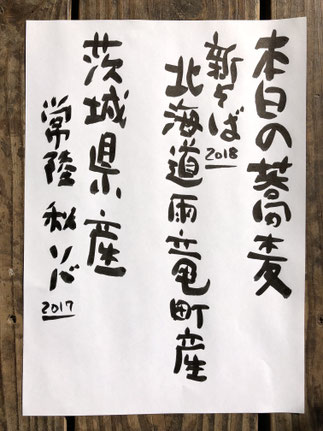 本日の蕎麦
新そば
2018
北海道雨竜町産
茨城県産
常陸秋ソバ
2017